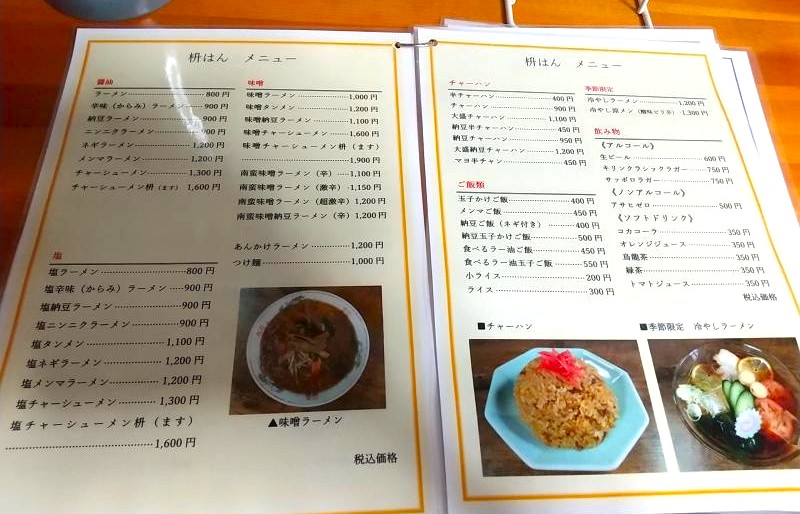 枡はん　メニュー
醤油
ラーメン 800円
辛味（からみ）ラーメン 900円
納豆ラーメン 900円
ニンニクラーメン 900円
ネギラーメン 1,200円
メンマラーメン 1,200円
チャーシューメン 1,300円
チャーシューメン枡（ます） 1,600円
塩
塩ラーメン 800円
塩辛味（からみ）ラーメン 900円
塩納豆ラーメン 900円
塩ニンニクラーメン 900円
塩タンメン 1,100円
塩ネギラーメン 1,200円
塩メンマラーメン 1,200円
塩チャーシューメン 1,300円
塩チャーシューメン枡（ます）
1,600円
味噌
味噌ラーメン 1,000円
味噌タンメン 1,200円
味噌納豆ラーメン 1,100円
味噌チャーシューメン 1,600円
味噌チャーシューメン枡（ます）
1,900円
南蛮味噌ラーメン（辛） 1,100円
南蛮味噌ラーメン（激辛） 1,150円
南蛮味噌ラーメン（超激辛） 1,200円
南蛮味噌納豆ラーメン（辛） 1,200円
あんかけラーメン 1,200円
つけ麺 1,000円
▲味噌ラーメン
税込価格
枡はん　メニュー
チャーハン
半チャーハン 400円
チャーハン 900円
大盛チャーハン 1,100円
納豆半チャーハン 450円
納豆チャーハン 950円
大盛納豆チャーハン 1,200円
マヨ半チャン 450円
ご飯類
玉子かけご飯 400円
メンマご飯 450円
納豆ご飯（ネギ付き） 400円
納豆玉子かけご飯 500円
食べるラー油ご飯 450円
食べるラー油玉子ご飯 550円
小ライス 200円
ライス 300円
季節限定
冷やしラーメン 1,200円
冷やし涼メン（酸味ピリ辛） 1,300円
飲み物
《アルコール》
生ビール 600円
キリンクラシックラガー 750円
サッポロラガー 750円
《ノンアルコール》
アサヒゼロ 500円
《ソフトドリンク》
コカコーラ 350円
オレンジジュース 350円
烏龍茶 350円
緑茶 350円
トマトジュース 350円
税込価格
■チャーハン
■季節限定　冷やしラーメン